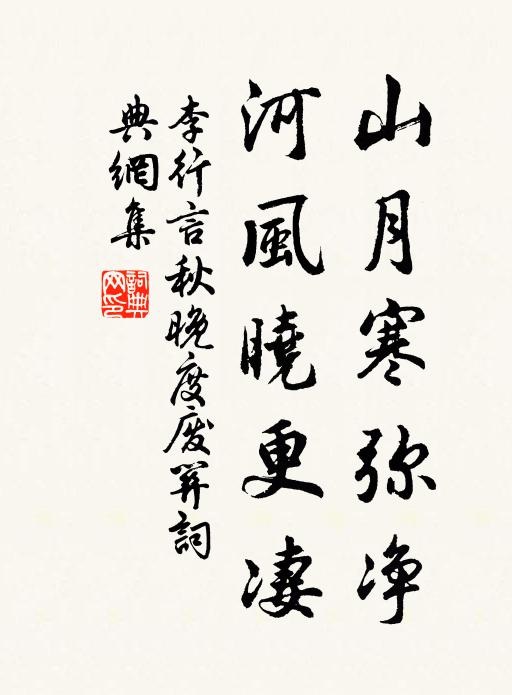 山月寒弥净
河風曉更凄
李行言秋晚度废關詞
典網集
詞典網印